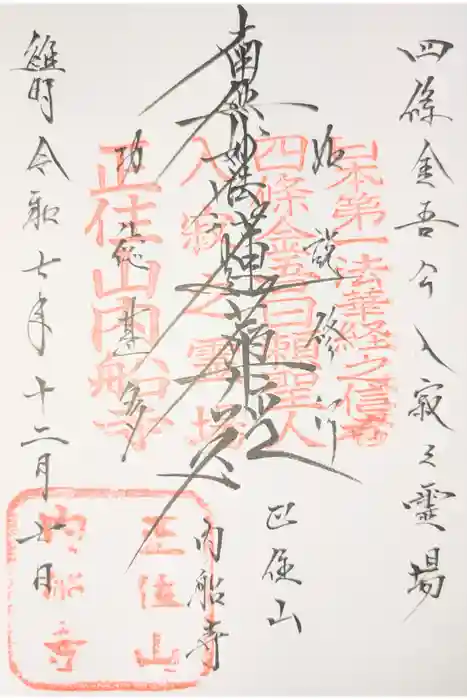 四條金吾公入寂之霊場
如説修行
南無妙法蓮華経
功徳甚多
正住山
内船寺
維時令和七年十二月七日
宗第一法華経之信者
四條金吾日頼聖人
入寂之霊場
正住山内船寺
正住山
内船寺